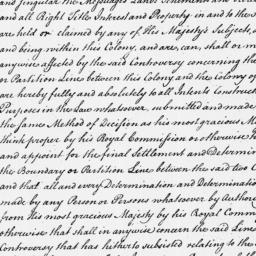 and singular the Messuages Lands Tenements and
and all Right Title Interest and Property in and to the
are held or claimed by any of His Majesty's Subjects,
and being within this Colony, and are, can, shall or m
anywise affected by the said Controversy concerning the
or Partition Line between this Colony and the Colony of
are hereby fully and absolutely to all Intents Construct
Purposes in the Law whatsoever, submitted and made
the same Method of Decision as his most gracious M
think proper by his Royal Commission or otherwise to
and appoint for the final Settlement and Determin
the Boundary or Partition Line between the said two C
and that all and every Determination and Determination
made by any Person or Persons whatsoever by Authori
from His most gracious Majesty by his Royal Comm
otherwise that shall in anywise concern the said Line
Controversy that has hitherto subsisted relating to the